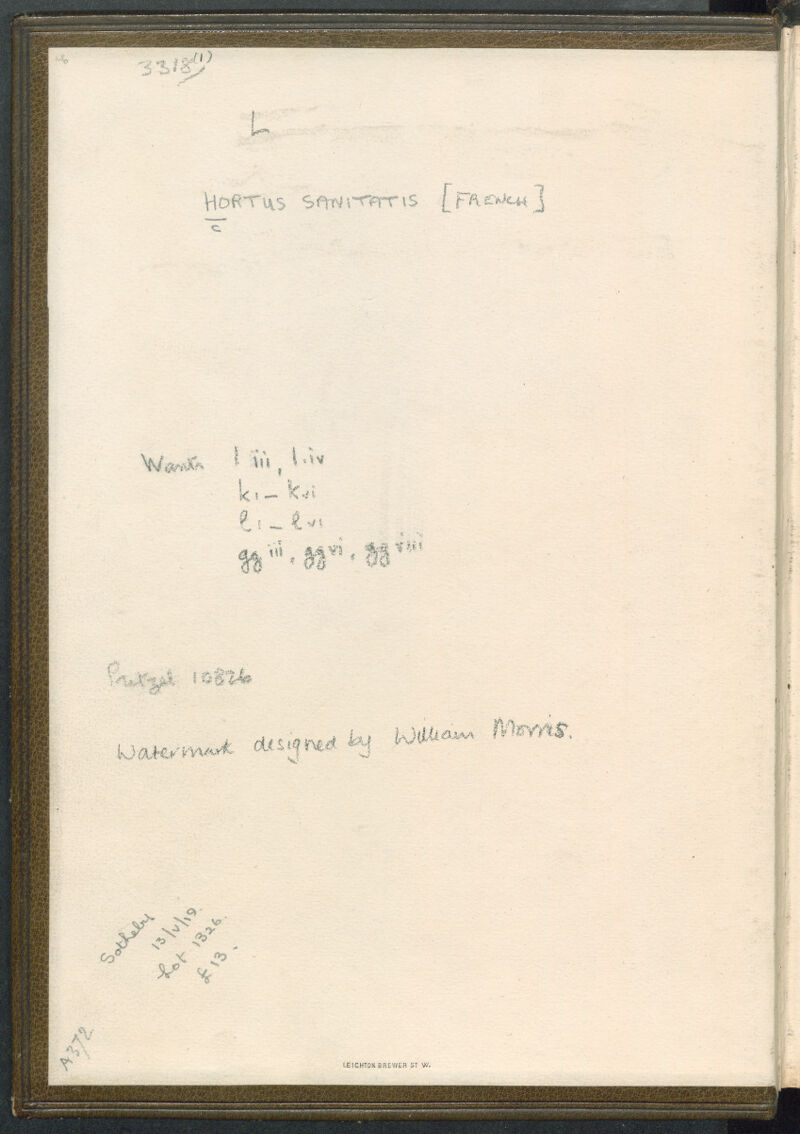 3318(1)
L
HORTUS SANITATIS [FRENCH]
c
Wants l iii, l.iv
k i – k vi
l i – l vi
gg iii, gg vi, gg viii
Pritzel 10826
Watermark designed by William Morris.
Sotheby
13/V/19.
Lot 1326.
£13.
A372
LEIGHTON BREWER ST W.